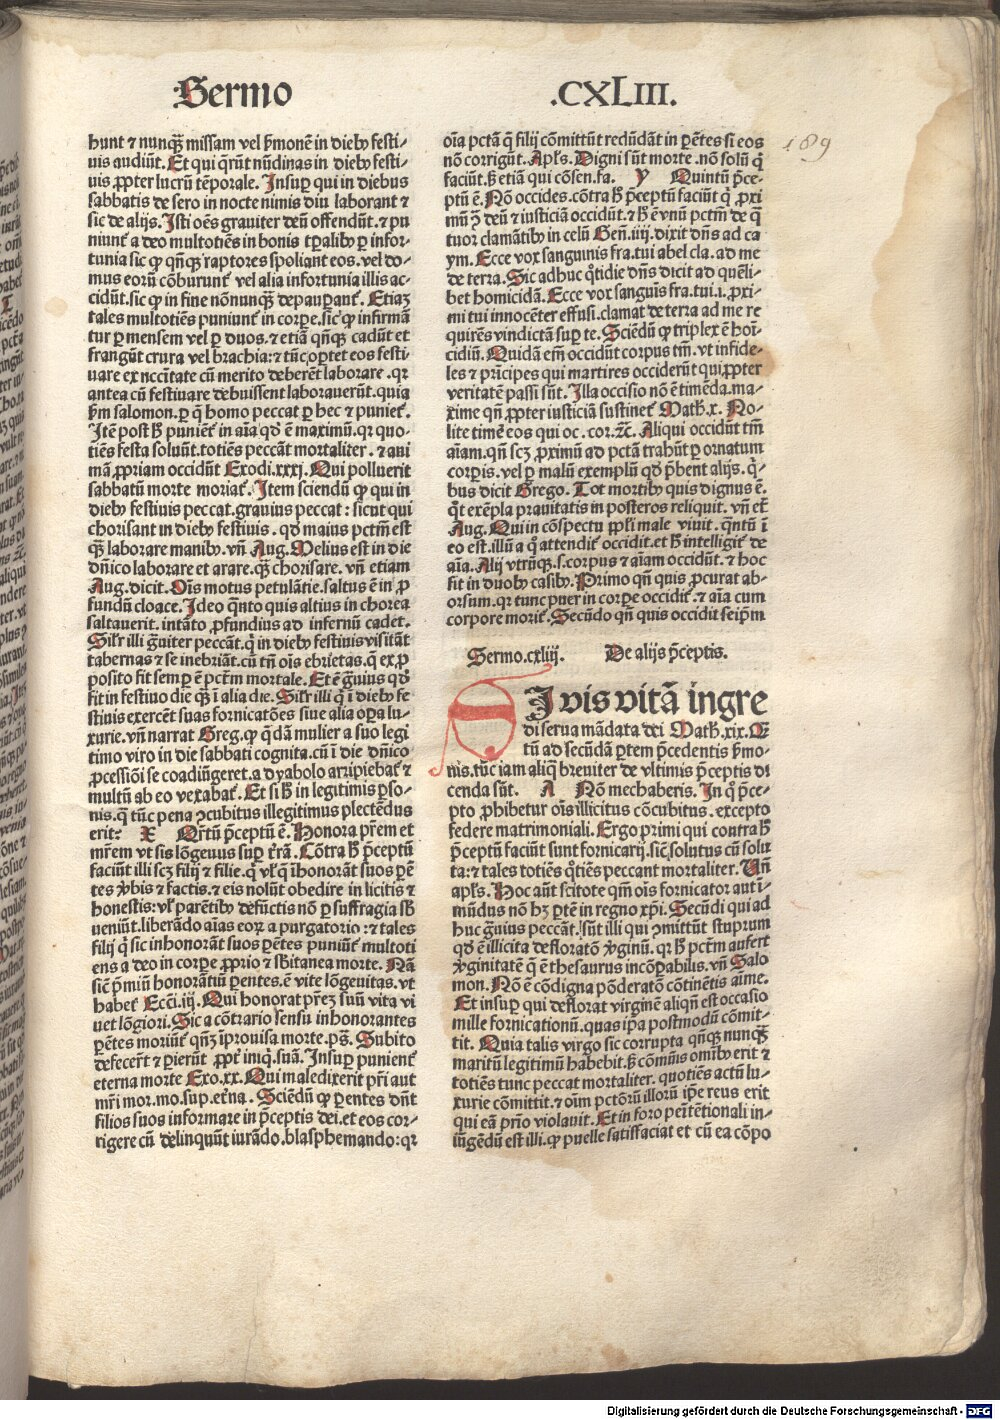 Sermo .CXLIII.
189
hunt ⁊ nunqȝ̃ missam vel ẜmonẽ in dieb⁹ festi-
uis audiũt. Et qui q̃rũt nũdinas in dieb⁹ festi-
uis ꝓpter lucrũ tẽporale. Insuꝑ qui in diebus
sabbatis de sero in nocte nimis diu laborant ⁊
sic de alijs. Isti oẽs grauiter deũ offendũt. ⁊ pu
niunt᷑ a deo multotiẽs in bonis tꝑalib⁹ ꝑ infor-
tunia sic ꝙ qñqȝ raptores spoliant eos. vel do-
mus eorũ cõburunt᷑ vel alia infortunia illis ac-
cidũt. sic ꝙ in fine nõnunqȝ̃ depauꝑant᷑. Etiaȝ
tales multotiẽs puniunt᷑ in corꝑe. sic ꝙ infirmã
tur ꝑ mensem vel ꝑ duos. ⁊ etiã qñqȝ cadũt et
frangũt crura vel brachia: ⁊ tũc oꝑtet eos festi
uare ex nccĩtate cũ merito deberẽt laborare. qꝛ
antea cũ festiuare debuissent laborauerũt. quia
ẜm salomon. ꝑ q̃ homo peccat ꝑ hec ⁊ puniet᷑.
Itẽ post h̃ puniẽt᷑ in aĩa qd̃ ẽ maximũ. qꝛ quo-
tiẽs festa soluũt. totiẽs peccãt mortaliter. ⁊ ani
mã ꝓpriam occidũt Exodi. xxxj. Qui polluerit
sabbatũ morte moriat᷑. Item sciendũ ꝙ qui in
dieb⁹ festiuis peccat. grauius peccat: sicut qui
chorisant in dieb⁹ festiuis. qd̃ maius pctm̃ est
qȝ̃ laborare manib⁹. vñ Aug. Melius est in die
dñico laborare et arare. qȝ̃ chorisare. vñ etiam
Aug. dicit. Oĩs motus petulãtie. saltus ẽ in ꝓ
fundũ cloace. Ideo q̃nto quis altius in chorea
saltauerit. intãto ꝓfundius ad infernũ cadet.
Silr̃ illi g̃uiter peccãt. q̃ in dieb⁹ festiuis visitãt
tabernas ⁊ se inebriãt. cũ tñ oĩs ebrietas. q̃ ex ꝓ
posito fit semꝑ ẽ pctm̃ mortale. Et ẽ g̃uius qd̃
fit in festiuo die qȝ̃ ĩ alia die. Silr̃ illi q̃ ĩ dieb⁹ fe
stiuis exercẽt suas fornicatões siue alia oꝑa lu-
xurie. vñ narrat Greg. ꝙ q̃dã mulier a suo legi
timo viro in die sabbati cognita. cũ ĩ die dñico
ꝓcessiõi se coadiũgeret. a dyabolo arripiebat᷑ ⁊
multũ ab eo vexabat᷑. Et si h̃ in legitimis ꝑso-
nis. q̃ tũc pena ↄcubitus illegitimus plectẽdus
erit? X Qr̃tũ p̃ceptũ ẽ. Honora pr̃em et
mr̃em vt sis lõgeuus suꝑ tr̃ã. Cõtra h̃ p̃ceptũ
faciũt illi scȝ filij ⁊ filie. q̃ vl̓ q̃ ĩhonorãt suos ꝑẽ
tes v̓bis ⁊ factis. ⁊ eis nolũt obedire in licitis ⁊
honestis: vl̓ parẽtib⁹ defũctis nõ ꝑ suffragia sb̃
ueniũt. liberãdo aĩas eoꝝ a purgatorio: ⁊ tales
filij q̃ sic inhonorãt suos ꝑẽtes puniũt᷑ multoti
ens a deo in corꝑe ꝓprio ⁊ sb̃itanea morte. Nã
sic̃ p̃miũ honorãtiũ ꝑentes. ẽ vite lõgeuitas. vt
habet᷑ Ecc̃i. iij. Qui honorat pr̃eȝ suũ vita vi
uet lõgiori. Sic a cõtrario sensu inhonorantes
ꝑẽtes moriũt᷑ qñȝ ĩprouisa morte. ps̃. Subito
defecer̃t ⁊ ꝑierũt ꝓpt̃ iniq̃. suã. Insuꝑ punient᷑
eterna morte Exo. xx. Qui maledixerit pr̃i aut
mr̃i mor. mo. sup. et̃na. Sciẽdũ ꝙ ꝑentes dñt
filios suos informare in p̃ceptis dei. et eos cor-
rigere cũ delinquũt iurãdo. blasphemando: qꝛ
oĩa pctã q̃ filij cõmittũt redũdãt in ꝑẽtes si eos
nõ corrigũt. Apl̓s. Digni sũt morte. nõ solũ q̃
faciũt. ß etiã qui cõsen. fa. Y Quintũ p̃ce-
ptũ ẽ. Nõ occides. cõtra h̃ p̃ceptũ faciũt q̃ ꝓxi
mũ ꝫ deũ ⁊ iusticiã occidũt. ⁊ h̃ ẽ vnũ pctm̃ de q̃
tuor clamãtib⁹ in celũ Geñ. iiij. dixit dñs ad ca
ym. Ecce vox sanguinis fra. tui abel cla. ad me
de terra. Sic adhuc q̃tidie dñs dicit ad quẽli-
bet homicidã. Ecce vox sanguis fra. tui. i. ꝓxi-
mi tui innocẽter effusi. clamat de terra ad me re
quirẽs vindictã suꝑ te. Sciẽdũ ꝙ triplex ẽ homĩ
cidiũ. Quidã em̃ occidũt corpus tm̃. vt infide-
les ⁊ prĩcipes qui martires occiderũt qui ꝓpter
veritatẽ passi sũt. Illa occisio nõ ẽ timẽda. ma-
xime qñ ꝓpter iusticiã sustinet᷑ Math. x. No-
lite timẽ eos qui oc. cor. ⁊c̃. Aliqui occidũt tm̃
aĩam. qñ scȝ ꝓximũ ad pctã trahũt ꝑ ornatum
corꝑis. vel ꝑ malũ exemplũ qd̃ p̃bent alijs. q̃-
bus dicit Grego. Tot mortib⁹ quis dignus ẽ.
q̃t exẽpla prauitatis in posteros reliquit. vñ et̃
Aug. Qui in cõspectu ppl̓i male viuit. q̃ntũ ĩ
eo est. illũ a q̃ attendit᷑ occidit. et h̃ intelligit᷑ de
aĩa. Alij vtrũqȝ. s. corpus ⁊ aĩam occidũt. ⁊ hoc
fit in duob⁹ casib⁹. Primo qñ quis ꝓcurat ab-
orsum. qꝛ tunc puer in corꝑe occidit᷑. ⁊ aĩa cum
corpore morit᷑. Secũdo qñ quis occidit seipm̃
Sermo. cxliij. De alijs p̃ceptis.
SI vis vitã ingre
di serua mãdata dei Math̃. xix. Q̃
tũ ad secũdã ꝑtem p̃cedentis ẜmo-
nis. tũc iam aliq̃ breuiter de vltimis p̃ceptis di
cenda sũt. A Nõ mechaberis. In q̃ p̃ce-
pto ꝓhibetur oĩs illicitus cõcubitus. excepto
federe matrimoniali. Ergo primi qui contra h̃
p̃ceptũ faciunt sunt fornicarij. sic̃ solutus cũ solu
ta: ⁊ tales totiẽs q̃tiẽs peccant mortaliter. Vñ
apl̓s. Hoc aũt scitote qm̃ oĩs fornicator aut ĩ-
mũdus nõ hȝ ꝑtẽ in regno xp̃i. Secũdi qui ad
huc g̃uius peccãt. sũt illi qui ↄmittũt stuprum
qd̃ ẽ illicita defloratõ v̓ginũ. qꝛ h̃ pctm̃ aufert
v̓ginitatẽ q̃ ẽ thesaurus incõꝑabilis. vñ Salo
mon. Nõ ẽ cõdigna põderatõ cõtinẽtis aĩme.
Et insuꝑ qui deflorat virginẽ aliqñ est occasio
mille fornicationũ. quas ip̃a postmodũ cõmit-
tit. Quia talis virgo sic corrupta qñqȝ nunqȝ̃
maritũ legitimũ habebit. ß cõmũis omib⁹ erit ⁊
totiẽs tunc peccat mortaliter. quotiẽs actũ lu-
xurie cõmittit. ⁊ oĩm pctõrũ illorũ ip̃e reus erit
qui eã prĩo violauit. Et in foro penĩtẽtionali in-
iũgẽdũ est illi. ꝙ puelle satisfaciat et cũ ea cõpo
Digitalisierung gefördert durch die Deutsche Forschungsgemeinschaft - DFG